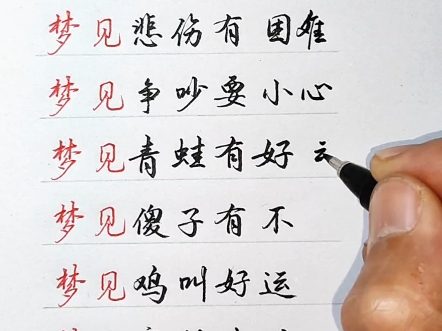 梦见悲伤有困难
梦见争吵要小心
梦见青蛙有好云
梦见傻子有不
梦见鸡叫好运